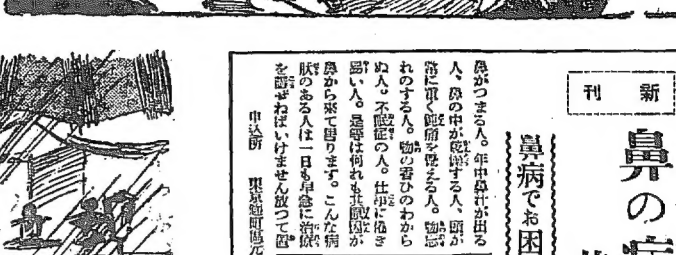 新刊
鼻の病
鼻病でお困
鼻がつまる人。年中鼻汁が出る
人、鼻の中が乾燥する人、頭が
常に重く鈍痛を覚える人。物忘
れのする人。物の香ひのわから
ぬ人。不眠症の人。仕事に倦き
易い人。是等は何れも其原因が
鼻から来て居ります。こんな病
状のある人は一日も早急に治療
を講ぜねばいけません放つて置
申込所 東京麹町區元